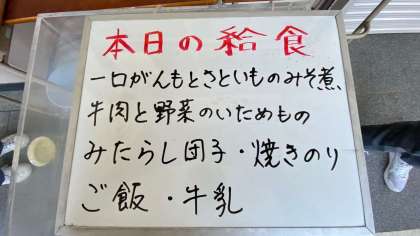 本日の給食
一口がんもとさといものみそ煮
牛肉と野菜のいためもの
みたらし団子・焼きのり
ご飯・牛乳